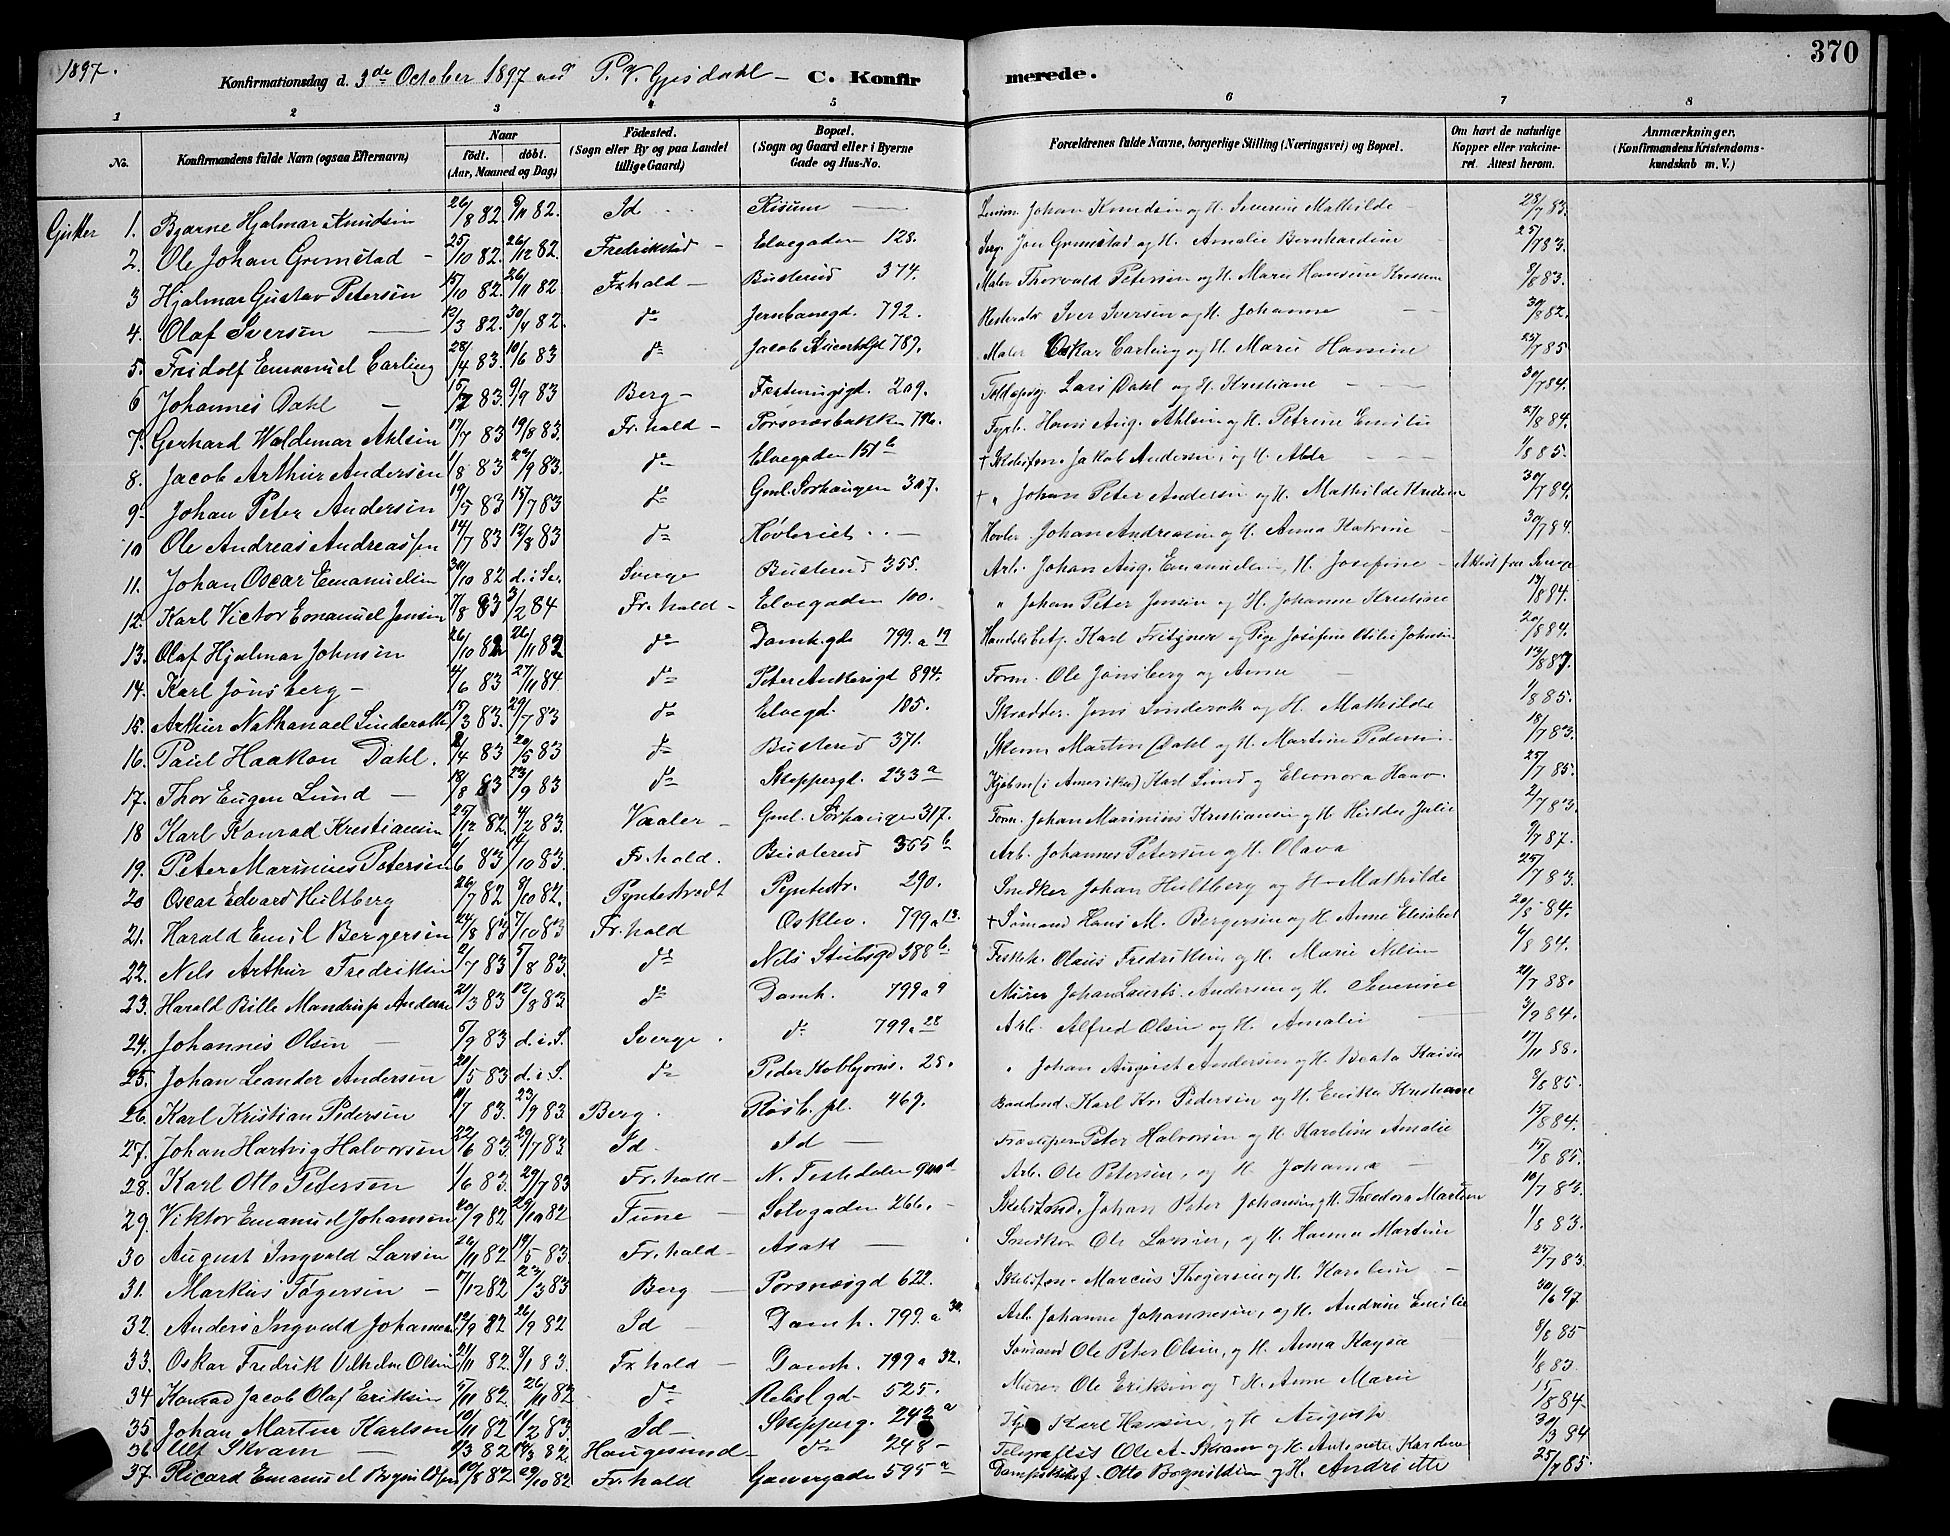 1897.
Konfirmationsdag d. 3de October 1897 ved P. V. Gjesdahl – C. Konfirmerede.
370
1 2 3 4 5 6 7 8
No.
Konfirmandens fulde Navn (ogsaa Efternavn)
Naar
födt. döbt.
(Aar, Maaned og Dag)
Födested.
(Sogn eller By og paa Landet
tillige Gaard)
Bopæl.
(Sogn og Gaard eller i Byerne
Gade og Hus-No.
Forældrenes fulde Navne, borgerlige Stilling (Næringsvei) og Bopæl.
Om havt de naturlige
Kopper eller vakcine-
ret. Attest herom.
Anmærkninger.
(Konfirmandens Kristendoms-
kundskab m. V.)
Gutter 1. Bjarne Hjalmar Knudsen 26/8 82 82. Id Risum Johan Knudsen og H. Severine Mathilde 28/7 83.
2. Ole Johan Gremstad – 25/10 82. 26/12 82. Fredrikstad – Elvegaden 128. Jon Gremstad og H. Amalie Bernhardine 25/7 83.
3 Hjalmar Gustav Petersen 15/10 82. 26/11 82. Fr.hald – Busterud 374. Maler Thorvald Petersen og H. Marie Hansine 9/8 83.
4. Olaf Iversen 12/3 82. 30/4 82. do Jernbanegd. 792. Iver Iversen og H. Johanne 30/8 82.
5. Fridolf Emanuel Carling 28/4 83. 10/6 83 do 789. Maler Oskar Carling og H. Marie Hansine 25/7 85
6 Johannes Dahl – 83. 9/9 83 Berg – Festningsgd. 209. Lars Dahl og H. Kristiane 30/7 84.
7. Gerhard Waldemar Ahlsen 17/7 83 19/8 83. Fr.hald – Porsnæsbakken 796. Hans Aug. Ahlsen og H. Petrine Emilie 84.
8. Jacob Arthur Andersen 1/8 83 83. do Elvegaden 151 b † Jakob Andersen, og H. 1/8 85.
9. Johan Peter Andersen 19/5 83 15/7 83 do Gml. Sørhaugen 307. † " Johan Peter Andersen og H. Mathilde 30/7 84.
10 Ole Andreas Andreassen 14/7 83 12/8 83 do Høvleriet Høvler Johan Andreasen og H. Anna Katrine 30/7 84.
11. Johan Oscar Emanuelsen 30/10 82 d. i Sv. Sverge Busterud 355. Arb. Johan Aug. Emanuelsen, H. Josefine – Attest fra Sverge
12. Karl Victor Emanuel Jensen 7/8 83 3/2 84 Fr.hald – Elvegaden 100. " Johan Peter Jensen og H. Johanne Kristine 13/8 84.
13. Olaf Hjalmar Johnsen 26/10 82 26/11 82 do Damh.gd. 799.a 19 Handelsbetj. Karl Fritzner og Pige Josefine Otilie Johnsen 20/8 84.
14. Karl Jönsberg – 4/6 83 27/11 84. do Peter Ankersgd 894. Form. Ole Jönsberg og Anne 13/8 87.
15. Arthur Nathanael 15/3 83. 29/7 83 do Elvegd. 185. Skrædder. Jens og H. Mathilde 1/8 85.
16. Paul Haakon Dahl. 2/4 83 20/5 83 do Busterud 371. Martin Dahl og H. Martine Pedersen 18/7 83.
17. Thor Eugen Lund – 18/8 83 23/9 83 do Skeppergd. 233 a (i Amerika) Karl Lund og Eleonora 25/7 85.
18 Karl Konrad Kristiansen 25/12 82. 4/2 83. Vaaler – Gml. Sørhaugen 317. Form. Johan Marinius Kristiansen og H. Hulda Julie 2/7 83.
19. Peter Marinius Petersen 6/6 83 14/10 83. Fr.hald. Busterud 355 b Arb. Johannes Petersen og H. Olava 9/7 87.
20 Oscar Edvard Hultberg 26/7 82 8/10 82. Pyntestredt Pyntestr. 290. Snedker Johan Hultberg og H Mathilde 25/7 83.
21. Harald Emil Bergersen 24/8 83 7/10 83 Fr.hald Osklev. 799 a 13. † Sömand Hans M. Bergersen og H. Anne Elisabet 20/8 84.
22. Nels Arthur Fredriksen 2/7 83 5/8 83. do Nels Stubsgd 388 b. Olaus Fredriksen og H. Marie Nilsen 4/8 84.
23. Harald Bille Mandrup Andersen 21/3 83 12/8 83 do Damh. 799 a 9 Murer Johan Lauerts Andersen og H. Severine 21/7 88.
24. Johannes Olsen 5/9 83 d. i. S. Sverge. do 799 a 28 Arb. Alfred Olsen og H. Amalie 3/9 84.
25. Johan Leander Andersen 21/5 83 d. i. S. do Peder Kolbjørns. 25. " Johan August Andersen og H. Beata Kaisa 17/11 88.
26. Karl Kristian Pedersen 11/7 83. 23/9 83 Berg. Røsb. pl. 469. Karl Kr. Pedersen og H. Enika Kristiane 8/8 85.
27. Johan Hartvig Halvorsen 22/6 83 29/7 83 Id. Id Peter Halvorsen og H. Karoline Amalie 15/8 84.
28. Karl Otto Petersen 1/6 83. 29/7 83 Fr.hald – N. Tistedalen 900 d Arb. Ole Petersen, og H. Johanna 15/8 85.
29. Viktor Emanuel Johansen 20/9 82 29/10 82 Tune Solvgaden 266. Johan Peter Johansen og H. Theodora Martine 10/7 83.
30 August Ingvald Larsen 26/11 82 14/5 83. Fr.hald – Asak Snedker Ole Larsen, og H. Hanna Martine 1/8 83.
31. Markus Tøgersen – 17/12 82 23/3 83 Berg Porsnæsgd 622. Marcus Thøgersen og H. Karoline 25/7 83.
32. Anders Ingvald Johannesen 12/9 82 26/9 82 Id Damh. 799. a 30. Arb. Johanne Johannesen, og H. Andrine Emilie 30/6 97
33. Oskar Fredrik Vilhelm Olsen 24/11 82. 8/1 83. Fr.hald Damh. 799 a 32. Sömand Ole Peter Olsen, og H. Anna Kaysa 8/8 85
34 Konrad Jacob Olaf Eriksen 5/11 82. 26/11 82. do Rebslgd. 525. Murer Ole Eriksen og H. Anne Marie 1/8 83.
35 Johan Martin Karlsen 19/11 82 11/2 83. Id Skepperg. 242 a Karl Hansen, og H Augusta 15/8 84
36 Ulf Skram 1/3 82 82. Haugesund do 248 Telegrafist Ole A. Skram og H. Antonette Kardine 30/3 84
37. Ricard Emanuel Bognildsen 19/8 82 29/10 82 Fr.hald 595 a Otto Bognildsen og H. Andriette 25/7 85.